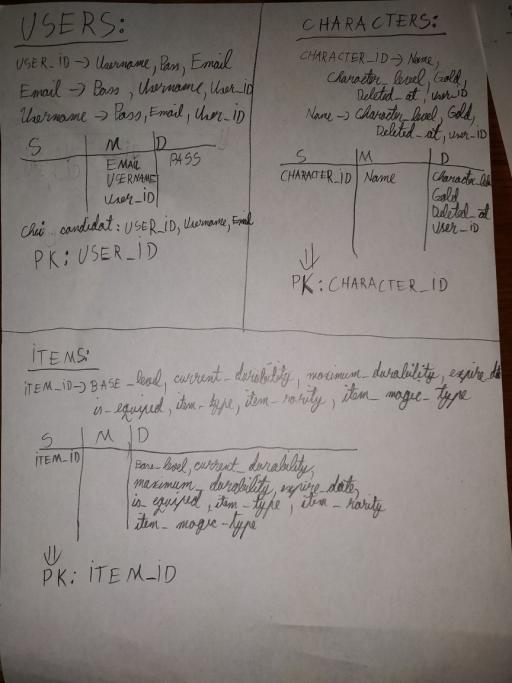 USERS:
USER_ID → Username, Pass, Email
Email → Pass, Username, User_iD
Username → Pass, Email, User_iD
S M D
EMAIL PASS
USERNAME
User_iD
Chei candidat: USER_iD, Username, Email
PK: USER_iD
CHARACTERS:
CHARACTER_iD → Name,
Character_level, Gold,
Deleted_at, user_iD
Name → Character_level, Gold,
Deleted_at, user_iD
S M D
CHARACTER_iD Name
Gold
Deleted_at
User_iD
⇓
PK: CHARACTER_iD
iTEMS:
iTEM_iD → BASE_level, current_durability, maximum_durability, expire_date
is_equiped, item_type, item_rarity, item_magic_type
S M D
iTEM_iD Base_level, current_durability,
maximum_durability, expire_date,
is_equiped, item_type, item_rarity
item_magic_type
⇓
PK: iTEM_iD